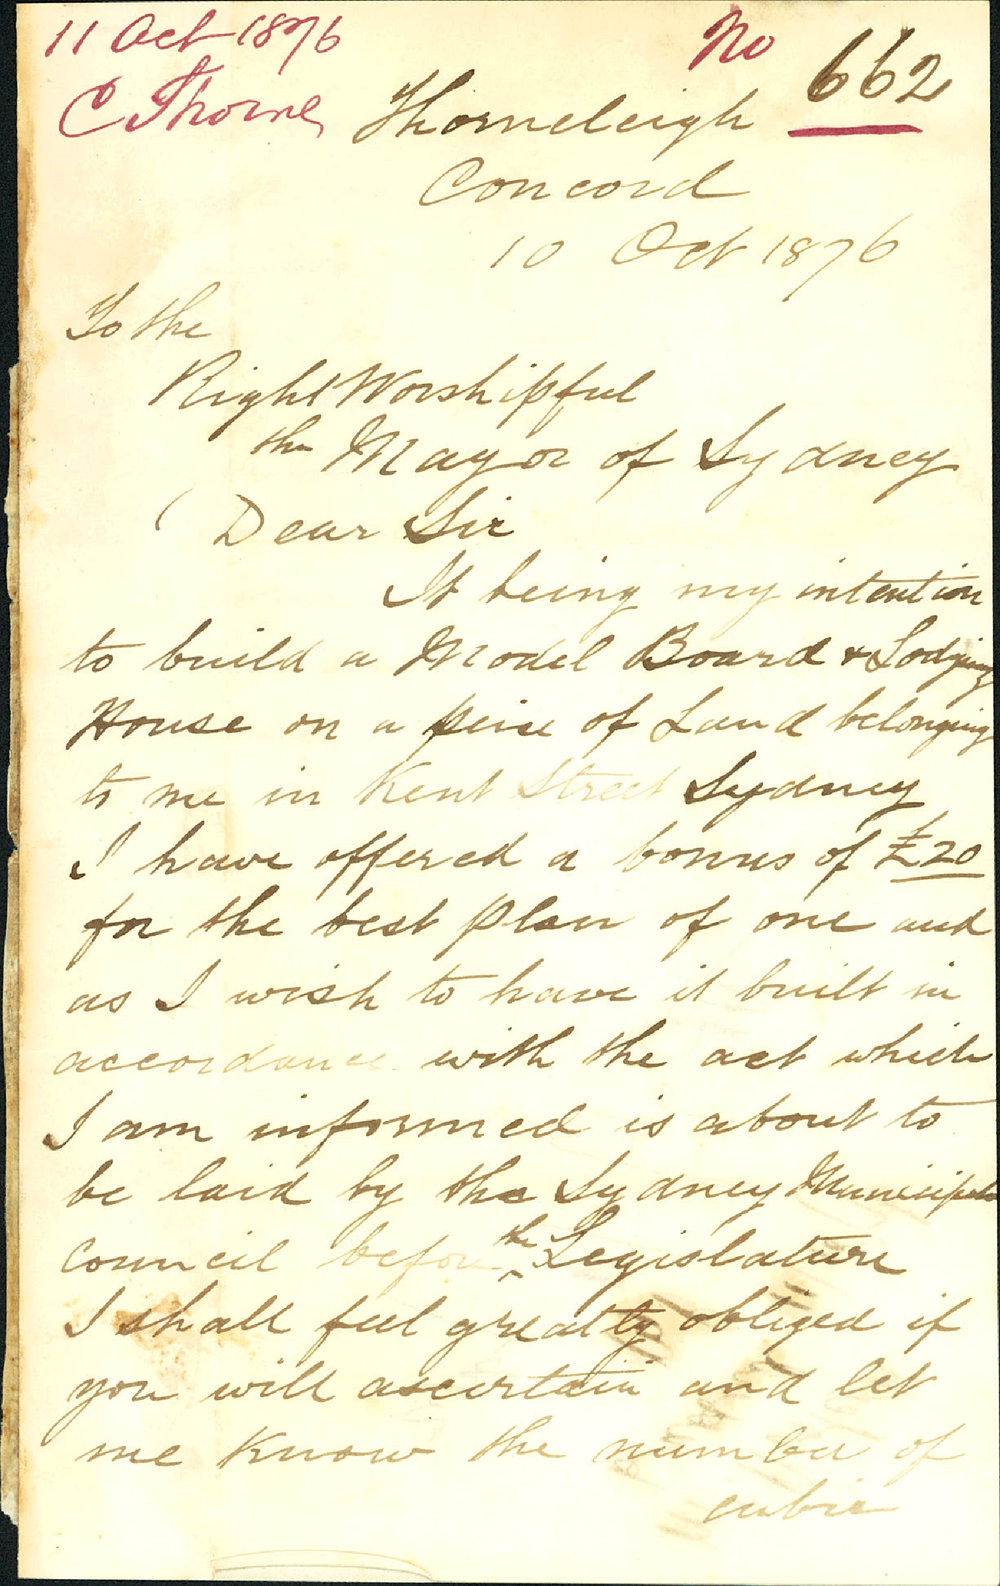 11 Oct 1876
No 662
C Thorne
Thorneleigh
Concord
10 Oct 1876
To the
Right Worshipful
the Mayor of Sydney
Dear Sir
It being my intention
to build a Model Board & Lodging
House on a peice of Land belonging
to me in Kent Street Sydney
I have offered a bonus of £20
for the best plan of one and
as I wish to have it built in
accordance with the act which
I am informed is about to
be laid by the Sydney Municipal
Council before the Legislature
I shall feel greatly obliged if
you will ascertain and let
me know the number of
cubic